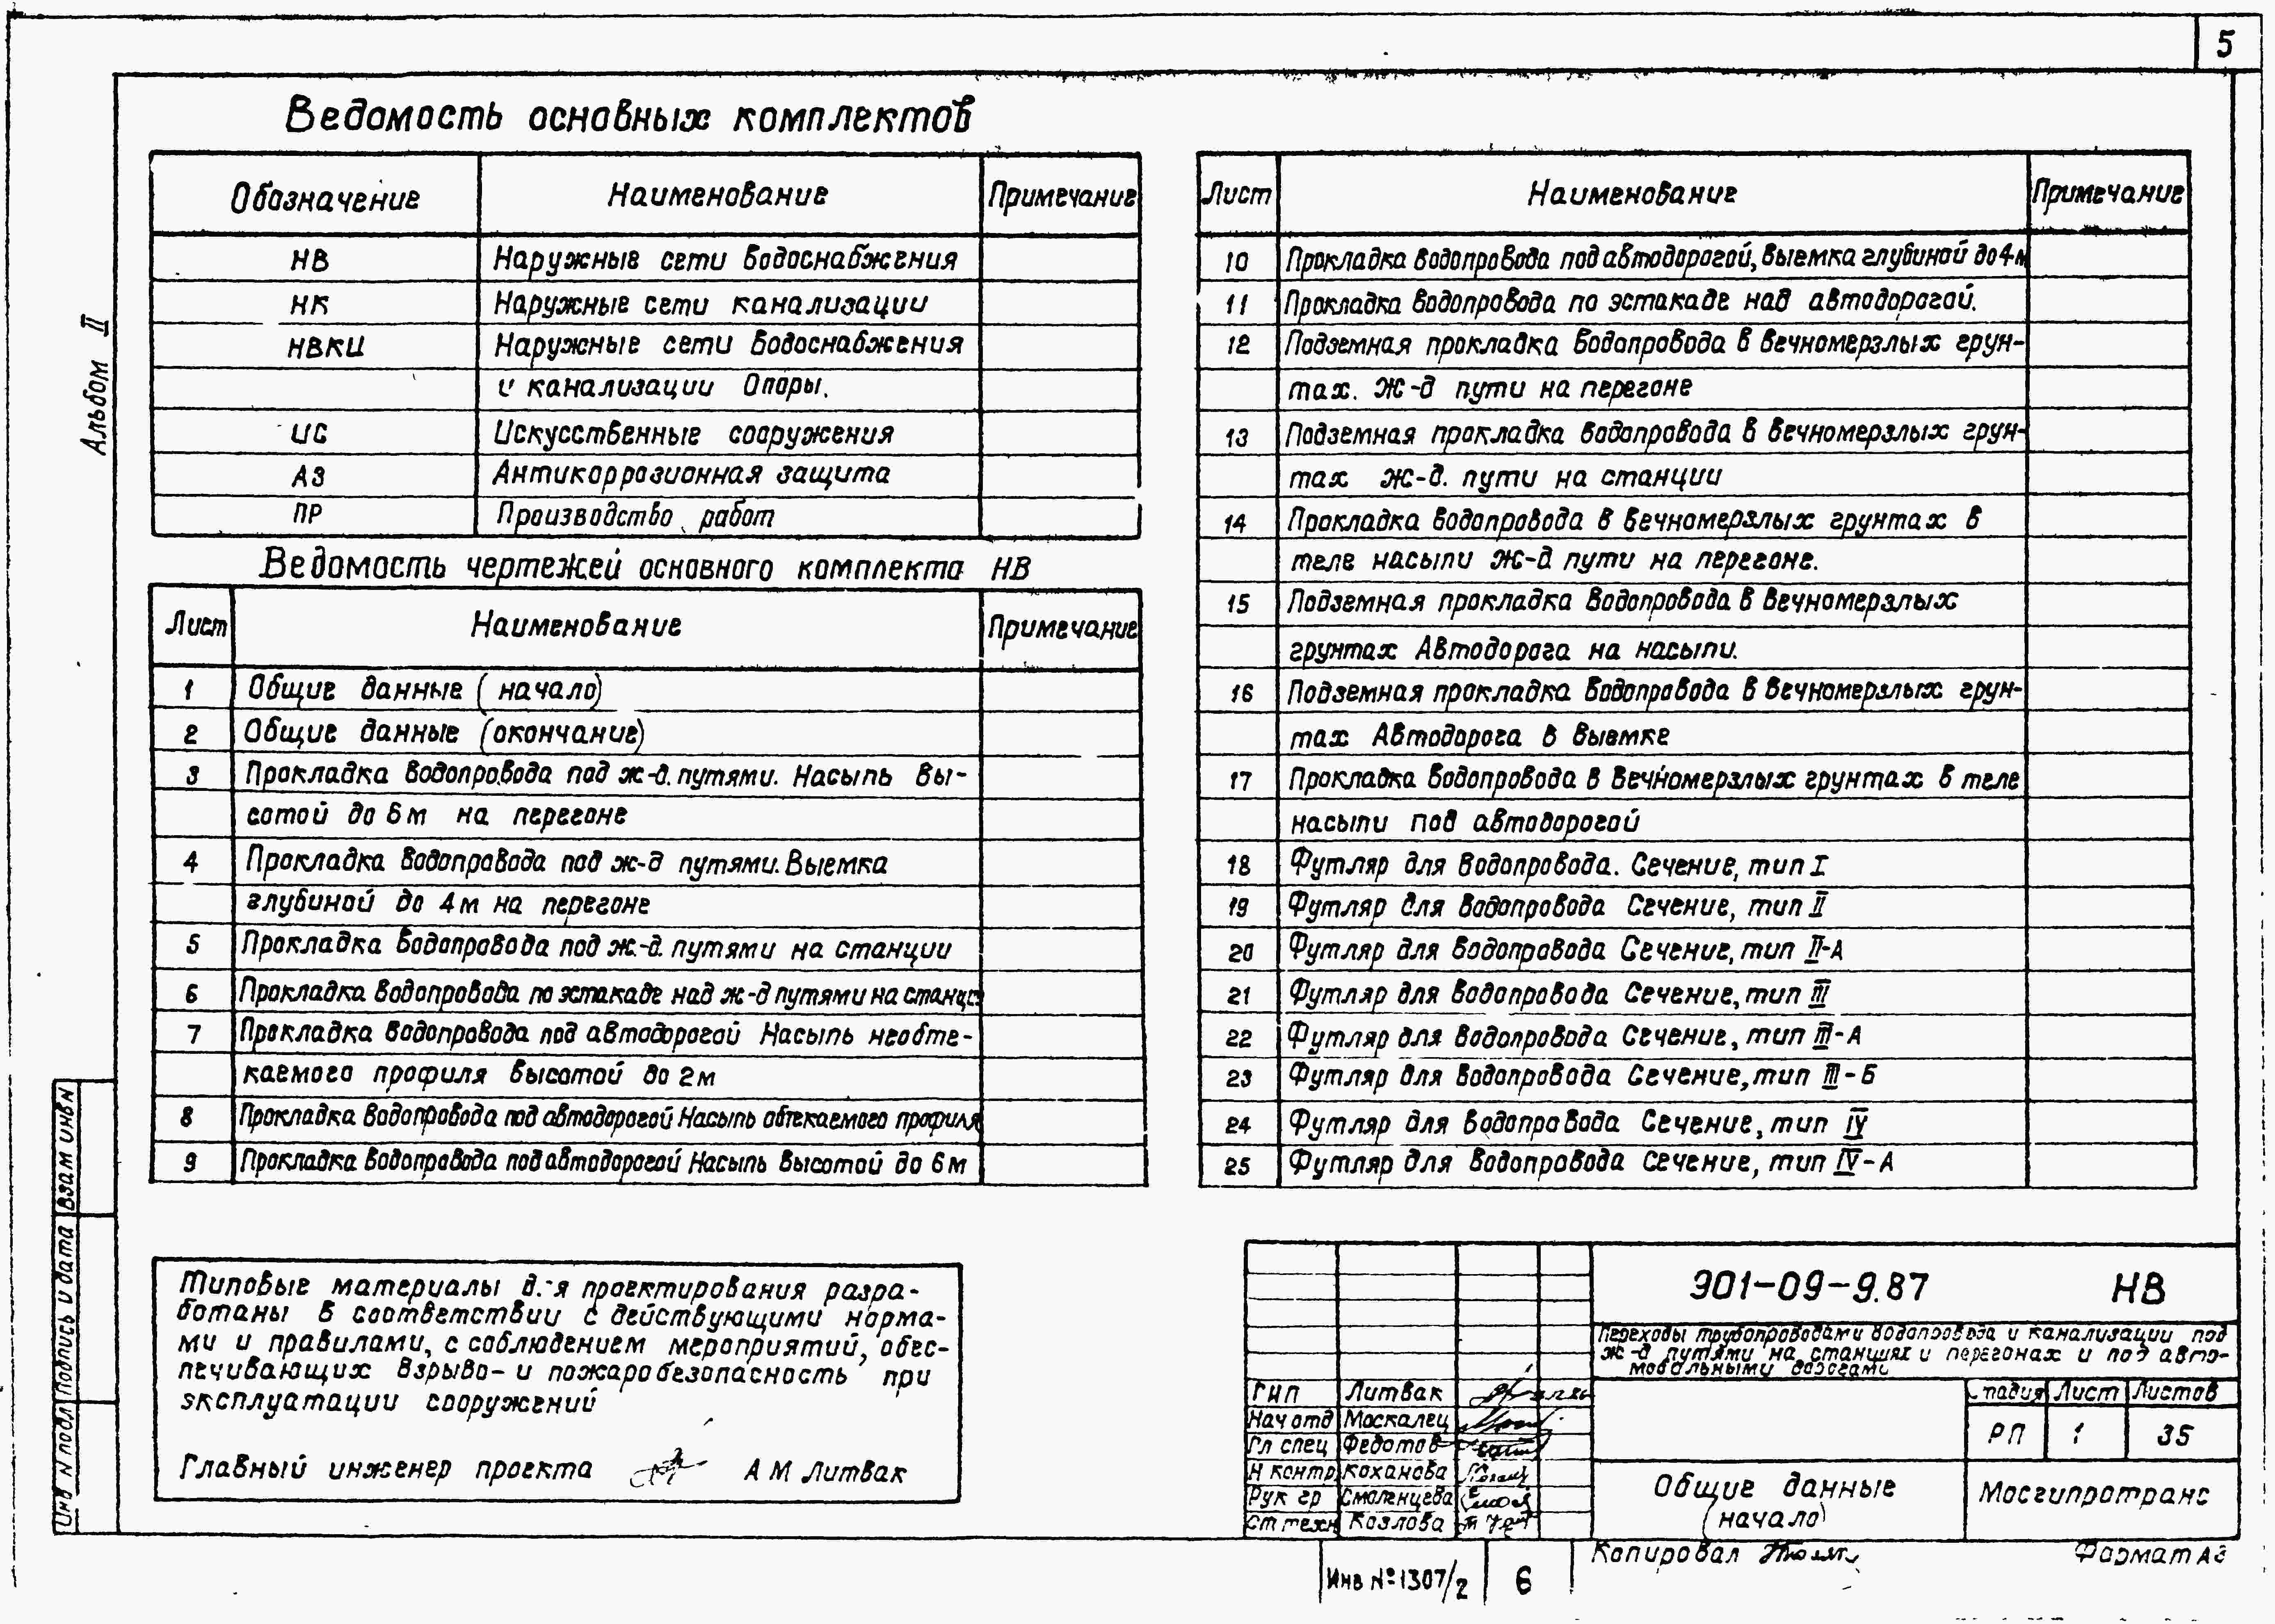 5
Альбом II
Ведомость основных комплектов
Обозначение Наименование Примечание
НВ Наружные сети водоснабжения
НК Наружные сети канализации
НВКИ Наружные сети водоснабжения
и канализации Опоры.
ИС Искусственные сооружения
АЗ Антикоррозионная защита
ПР Производство работ
Ведомость чертежей основного комплекта НВ
Лист Наименование Примечание
1 Общие данные (начало)
2 Общие данные (окончание)
3 Прокладка водопровода под ж-д. путями. Насыпь вы-
сотой до 6 м на перегоне
4 Прокладка водопровода под ж-д путями. Выемка
глубиной до 4 м на перегоне
5 Прокладка водопровода под ж.-д. путями на станции
6 Прокладка водопровода по эстакаде над ж-д путями на станци
7 Прокладка водопровода под автодорогой Насыпь необте-
каемого профиля высотой до 2 м
8 Прокладка водопровода под автодорогой Насыпь обтекаемого профиля
9 Прокладка водопровода под автодорогой Насыпь высотой до 6 м
Лист Наименование Примечание
10 Прокладка водопровода под автодорогой, выемка глубиной до 4 м
11 Прокладка водопровода по эстакаде над автодорогой.
12 Подземная прокладка водопровода в вечномерзлых грун-
тах. ж-д пути на перегоне
13 Подземная прокладка водопровода в вечномерзлых грун-
тах ж-д. пути на станции
14 Прокладка водопровода в вечномерзлых грунтах в
теле насыпи ж-д пути на перегоне.
15 Подземная прокладка водопровода в вечномерзлых
грунтах Автодорога на насыпи.
16 Подземная прокладка водопровода в вечномерзлых грун-
тах Автодорога в выемке
17 Прокладка водопровода в вечномерзлых грунтах в теле
насыпи под автодорогой
18 Футляр для водопровода. Сечение, тип I
19 Футляр для водопровода Сечение, тип II
20 Футляр для водопровода Сечение, тип II-А
21 Футляр для водопровода Сечение, тип III
22 Футляр для водопровода Сечение, тип III-А
23 Футляр для водопровода Сечение, тип III-Б
24 Футляр для водопровода Сечение, тип IV
25 Футляр для водопровода Сечение, тип IV-А
Типовые материалы для проектирования разра-
ботаны в соответствии с действующими норма-
ми и правилами, с соблюдением мероприятий, обес-
печивающих взрыво- и пожаробезопасность при
эксплуатации сооружений
Главный инженер проекта А М Литвак
Взам инв N
Подпись и дата
Инв N подл
901-09-9.87 НВ
Переходы трубопроводами водопровода и канализации под
ж-д путями на станциях и перегонах и под авто-
мобильными дорогами
ГИП Литвак
Нач отд Москалец
Гл спец Федотов
Н контр Коханова
Рук гр Смоленцева
Ст техн Козлова
Стадия Лист Листов
РП 1 35
Общие данные
(начало)
Мосгипротранс
Копировал
Формат А3
Инв № 1307/2 6